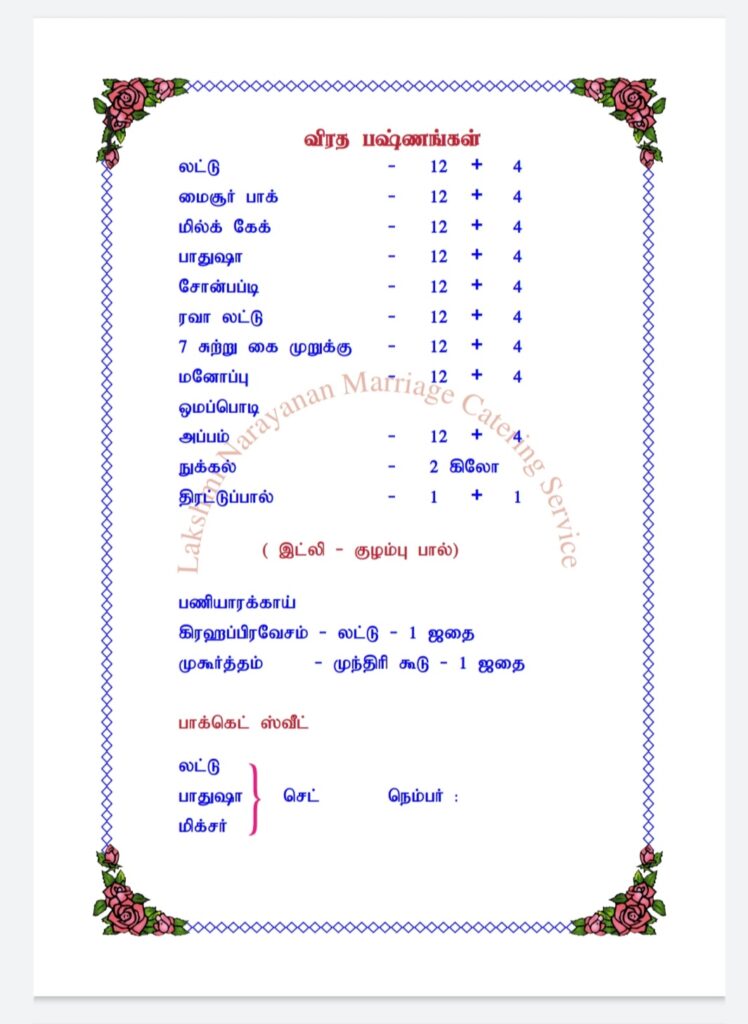 விரத பஷ்ணங்கள்
லட்டு - 12 + 4
மைசூர் பாக் - 12 + 4
மில்க் கேக் - 12 + 4
பாதுஷா - 12 + 4
சோன்பப்டி - 12 + 4
ரவா லட்டு - 12 + 4
7 சுற்று கை முறுக்கு - 12 + 4
மனோப்பு - 12 + 4
ஒமப்பொடி
அப்பம் - 12 + 4
நுக்கல் - 2 கிலோ
திரட்டுப்பால் - 1 + 1
Lakshmi Narayanan Marriage Catering Service
( இட்லி - குழம்பு பால்)
பணியாரக்காய்
கிரஹப்பிரவேசம் - லட்டு - 1 ஜதை
முகூர்த்தம் - முந்திரி கூடு - 1 ஜதை
பாக்கெட் ஸ்வீட்
லட்டு
பாதுஷா } செட் நெம்பர் :
மிக்சர்